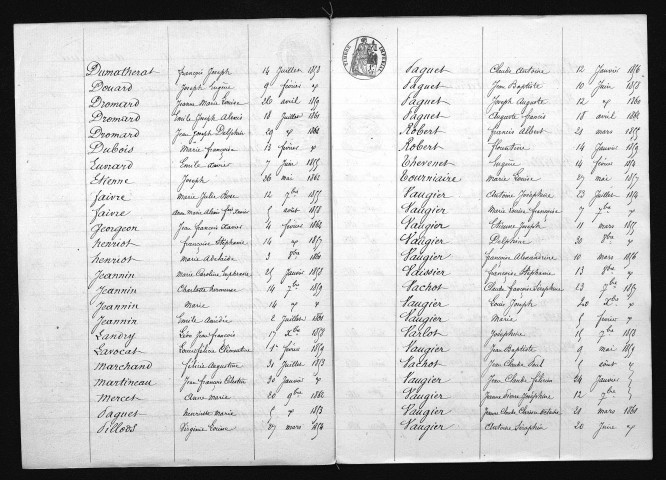 Dumatherat François Joseph 14 Juillet 1853
Douard Joseph Eugène 9 février "
Dromard Jeanne Marie Louise 26 avril 1859
Dromard Emile Joseph Alexis 18 Juillet 1861
Dromard Jean Joseph Delphin 29 " 1862
Dubois Marie françoise 13 février "
Eunard Emile 7 Juin 1855
Etienne Joseph 26 mai 1862
faivre Marie Julie Rose 12 7bre 1855
faivre 5 août 1858
Georgeon Jean françois Xavier 4 février 1862
henriot françoise Stéphanie 14 " 1857
henriot Marie Adelaïde 3 8bre 1860
Jeannin Marie Caroline Euphrasie 25 Janvier 1858
Jeannin Charlotte hermance 14 7bre 1859
Jeannin Marie 14 " "
Jeannin Emile Amédée 2 Juillet 1861
Landry Léon Jean françois 17 Xbre 1853
Lavocat Clémentine 1er février 1854
Marchand félicie Augustine 31 Juillet 1853
Martineau Jean françois Célestin 20 Janvier "
Mercet Anne Marie 20 9bre 1862
Paguet Henriette Marie 5 " 1853
Pillods Virginie Louise 27 mars 1854
TIMBRE IMPERIAL
Paguet Claude Antoine 12 Janvier 1856
Paguet Jean Baptiste 10 Juin 1858
Paguet Joseph Auguste 12 " 1860
Paguet Auguste francis 18 avril 1862
Robert francis Albert 21 mars 1857
Robert florentine 14 Janvier 1859
Thevenet Eugène 14 février 1854
Tourniaire Marie Louise 27 mai 1857
Vaugier Antoine Joséphine 23 Juillet 1854
Vaugier Marie Louise françoise 7 7bre "
Vaugier Etienne Joseph 11 mars 1855
Vaugier Delphine 30 8bre "
Vaugier françoise Alexandrine 10 mars 1856
Vaissier françoise Stéphanie 13 8bre "
Vachot Claude françois Séraphin 23 7bre 1857
Vaugier Louis Joseph 20 Xbre "
Vaugier Marie 5 février "
Varlot Joséphine 15 7bre 1853
Vaugier Jean Baptiste 9 mai 1859
Vachot Jean Claude Paul 5 août "
Vaugier Jean Claude félicien 24 Janvier
Vaugier Jeanne Joséphine 12 7bre
Vaugier Jeanne Claude 21 mars 1861
Vaugier Antoine Séraphin 20 Juin "